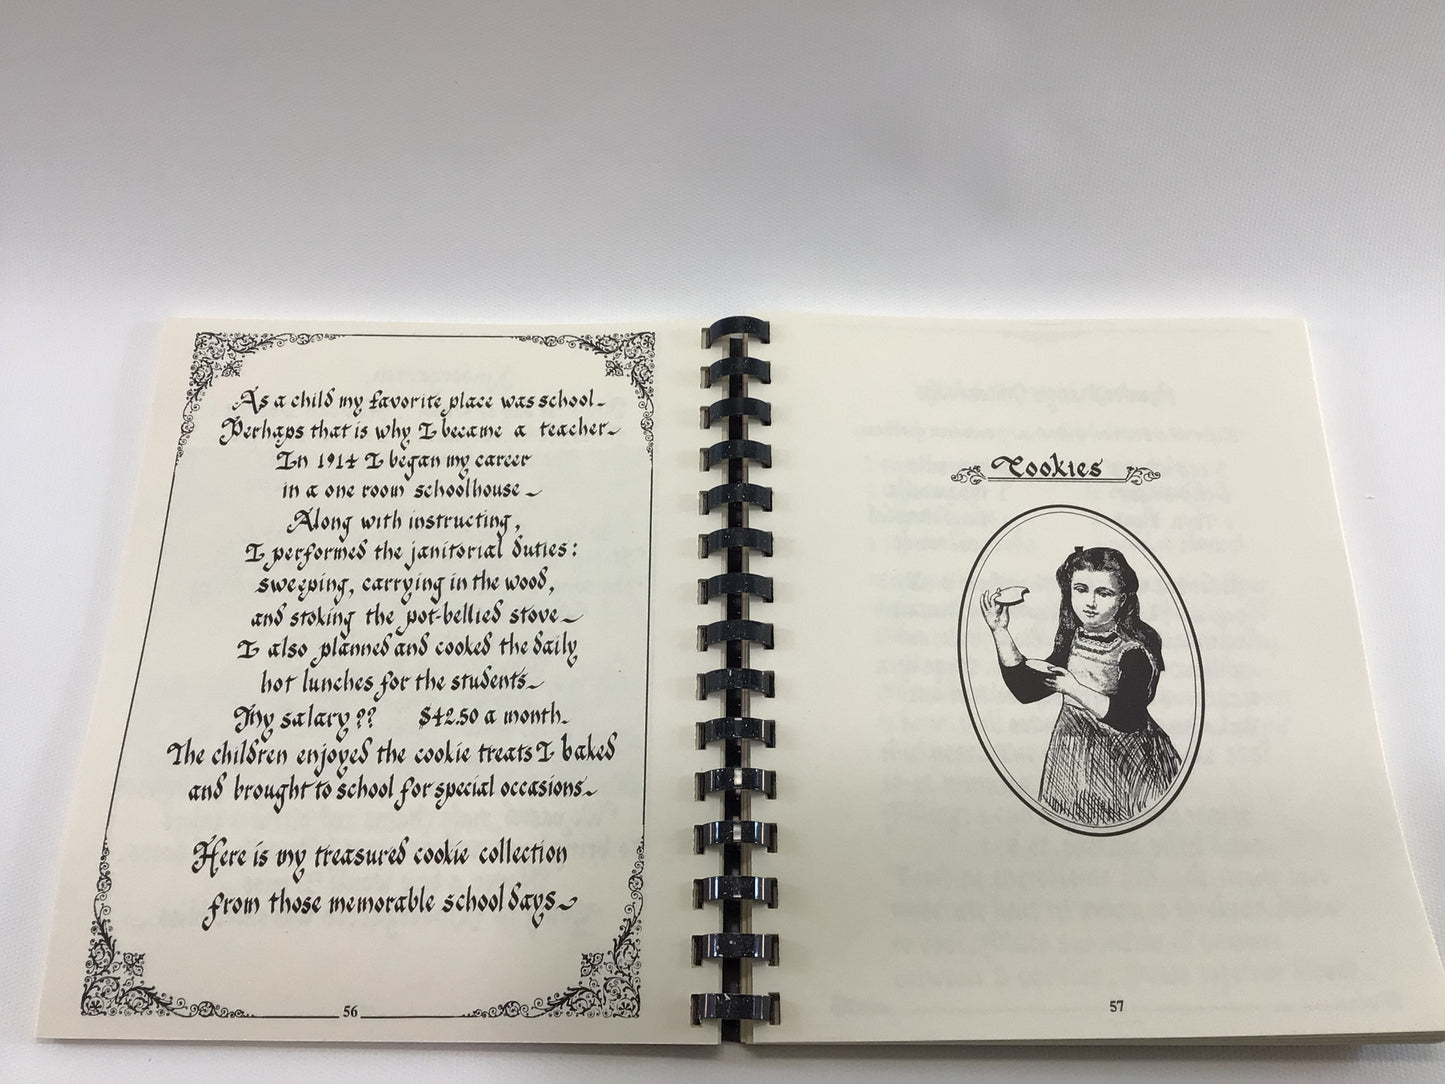 As a child my favorite place was school~
Perhaps that is why I became a teacher~
In 1914 I began my career
in a one room schoolhouse~
Along with instructing,
I performed the janitorial duties:
sweeping, carrying in the wood,
and stoking the pot-bellied stove~
I also planned and cooked the daily
hot lunches for the students~
My salary?? $42.50 a month~
The children enjoyed the cookie treats I baked
and brought to school for special occasions~
Here is my treasured cookie collection
from those memorable school days~
56
Cookies
57